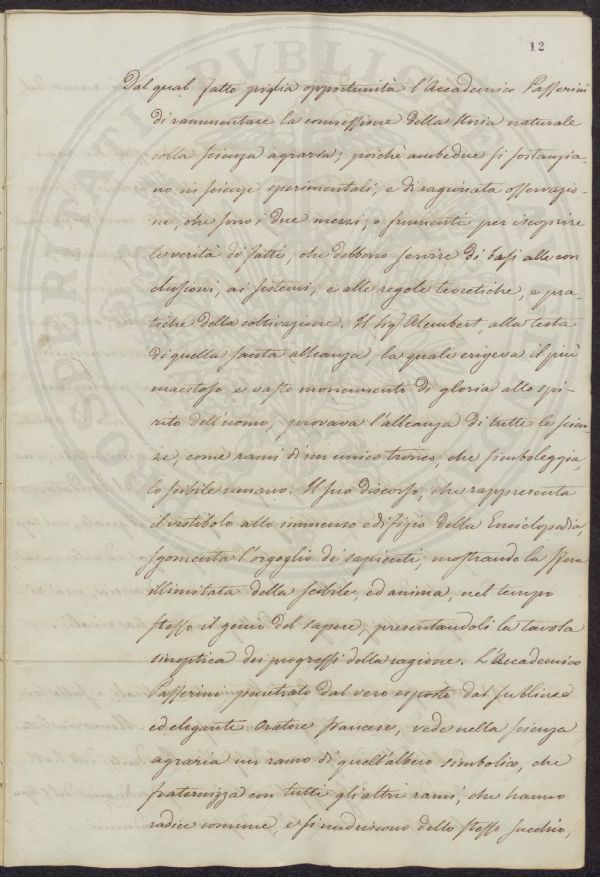 12
PROSPERITATI PVBLICAE
Dal qual fatto piglia opportunità l'Accademico Passerini
di rammentare la connessione della storia naturale
colla scienza agraria; poichè ambedue si sostanzia-
no in scienze sperimentali, e di ragionata osservazio-
ne, che sono i due mezzi, o strumenti per iscoprire
le verità di fatti, che debbono servire di basi alle con
clusioni, ai sistemi, e alle regole teoretiche, e pra-
tiche della coltivazione. Il sig.r Alembert, alla testa
di quella santa alleanza, la quale erigeva il più
maestoso e vasto monumento di gloria allo spi-
rito dell'uomo, provava l'alleanza di tutte le scien-
ze, come rami di un unico tronco, che simboleggia
lo scibile umano. Il suo discorso, che rappresenta
il vestibolo allo immenso edifizio della Enciclopedia,
sgomenta l'orgoglio de' sapienti, mostrando la sfera
illimitata dello scibile, ed anima, nel tempo
stesso il genio del sapere, presentandoli la tavola
sinoptica dei progressi della ragione. L'Accademico
Passerini penetrato dal vero esposto dal sublime
ed elegante Oratore francese, vede nella scienza
agraria un ramo di quell'albero simbolico, che
fraternizza con tutti gli altri rami, che hanno
radice comune, e si nudriscono dello stesso succhio,